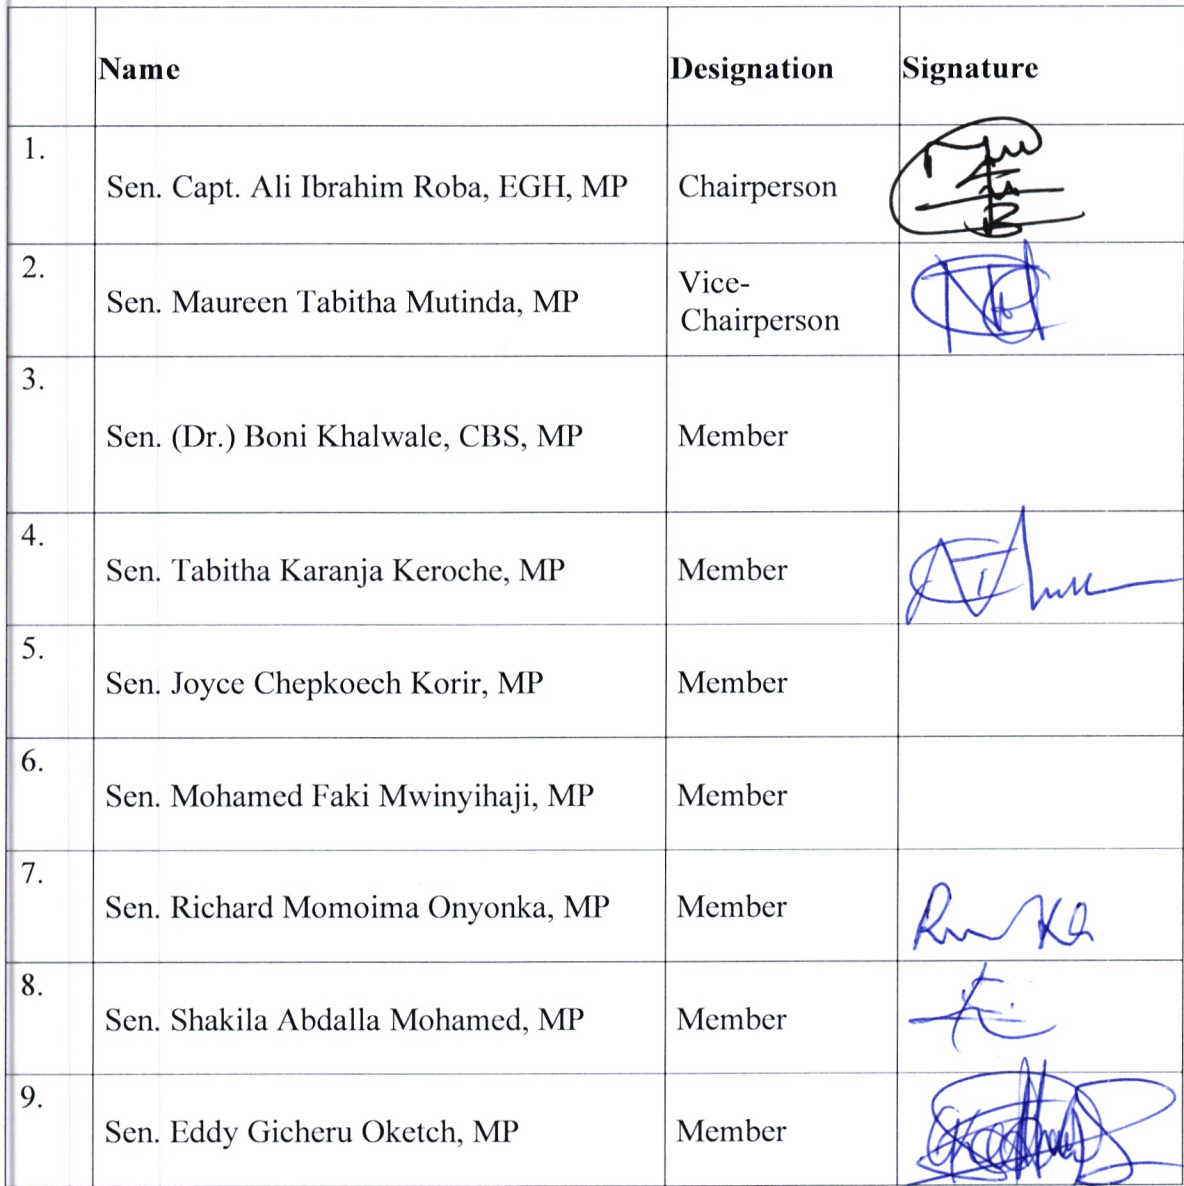 Name Designation Signature
1.
Sen. Capt. Ali Ibrahim Roba, EGH, MP Chairperson
2.
Sen. Maureen Tabitha Mutinda, MP Vice-
Chairperson
3.
Sen. (Dr.) Boni Khalwale, CBS, MP Member
4.
Sen. Tabitha Karanja Keroche, MP Member
5.
Sen. Joyce Chepkoech Korir, MP Member
6.
Sen. Mohamed Faki Mwinyihaji, MP Member
7.
Sen. Richard Momoima Onyonka, MP Member
8.
Sen. Shakila Abdalla Mohamed, MP Member
9.
Sen. Eddy Gicheru Oketch, MP Member